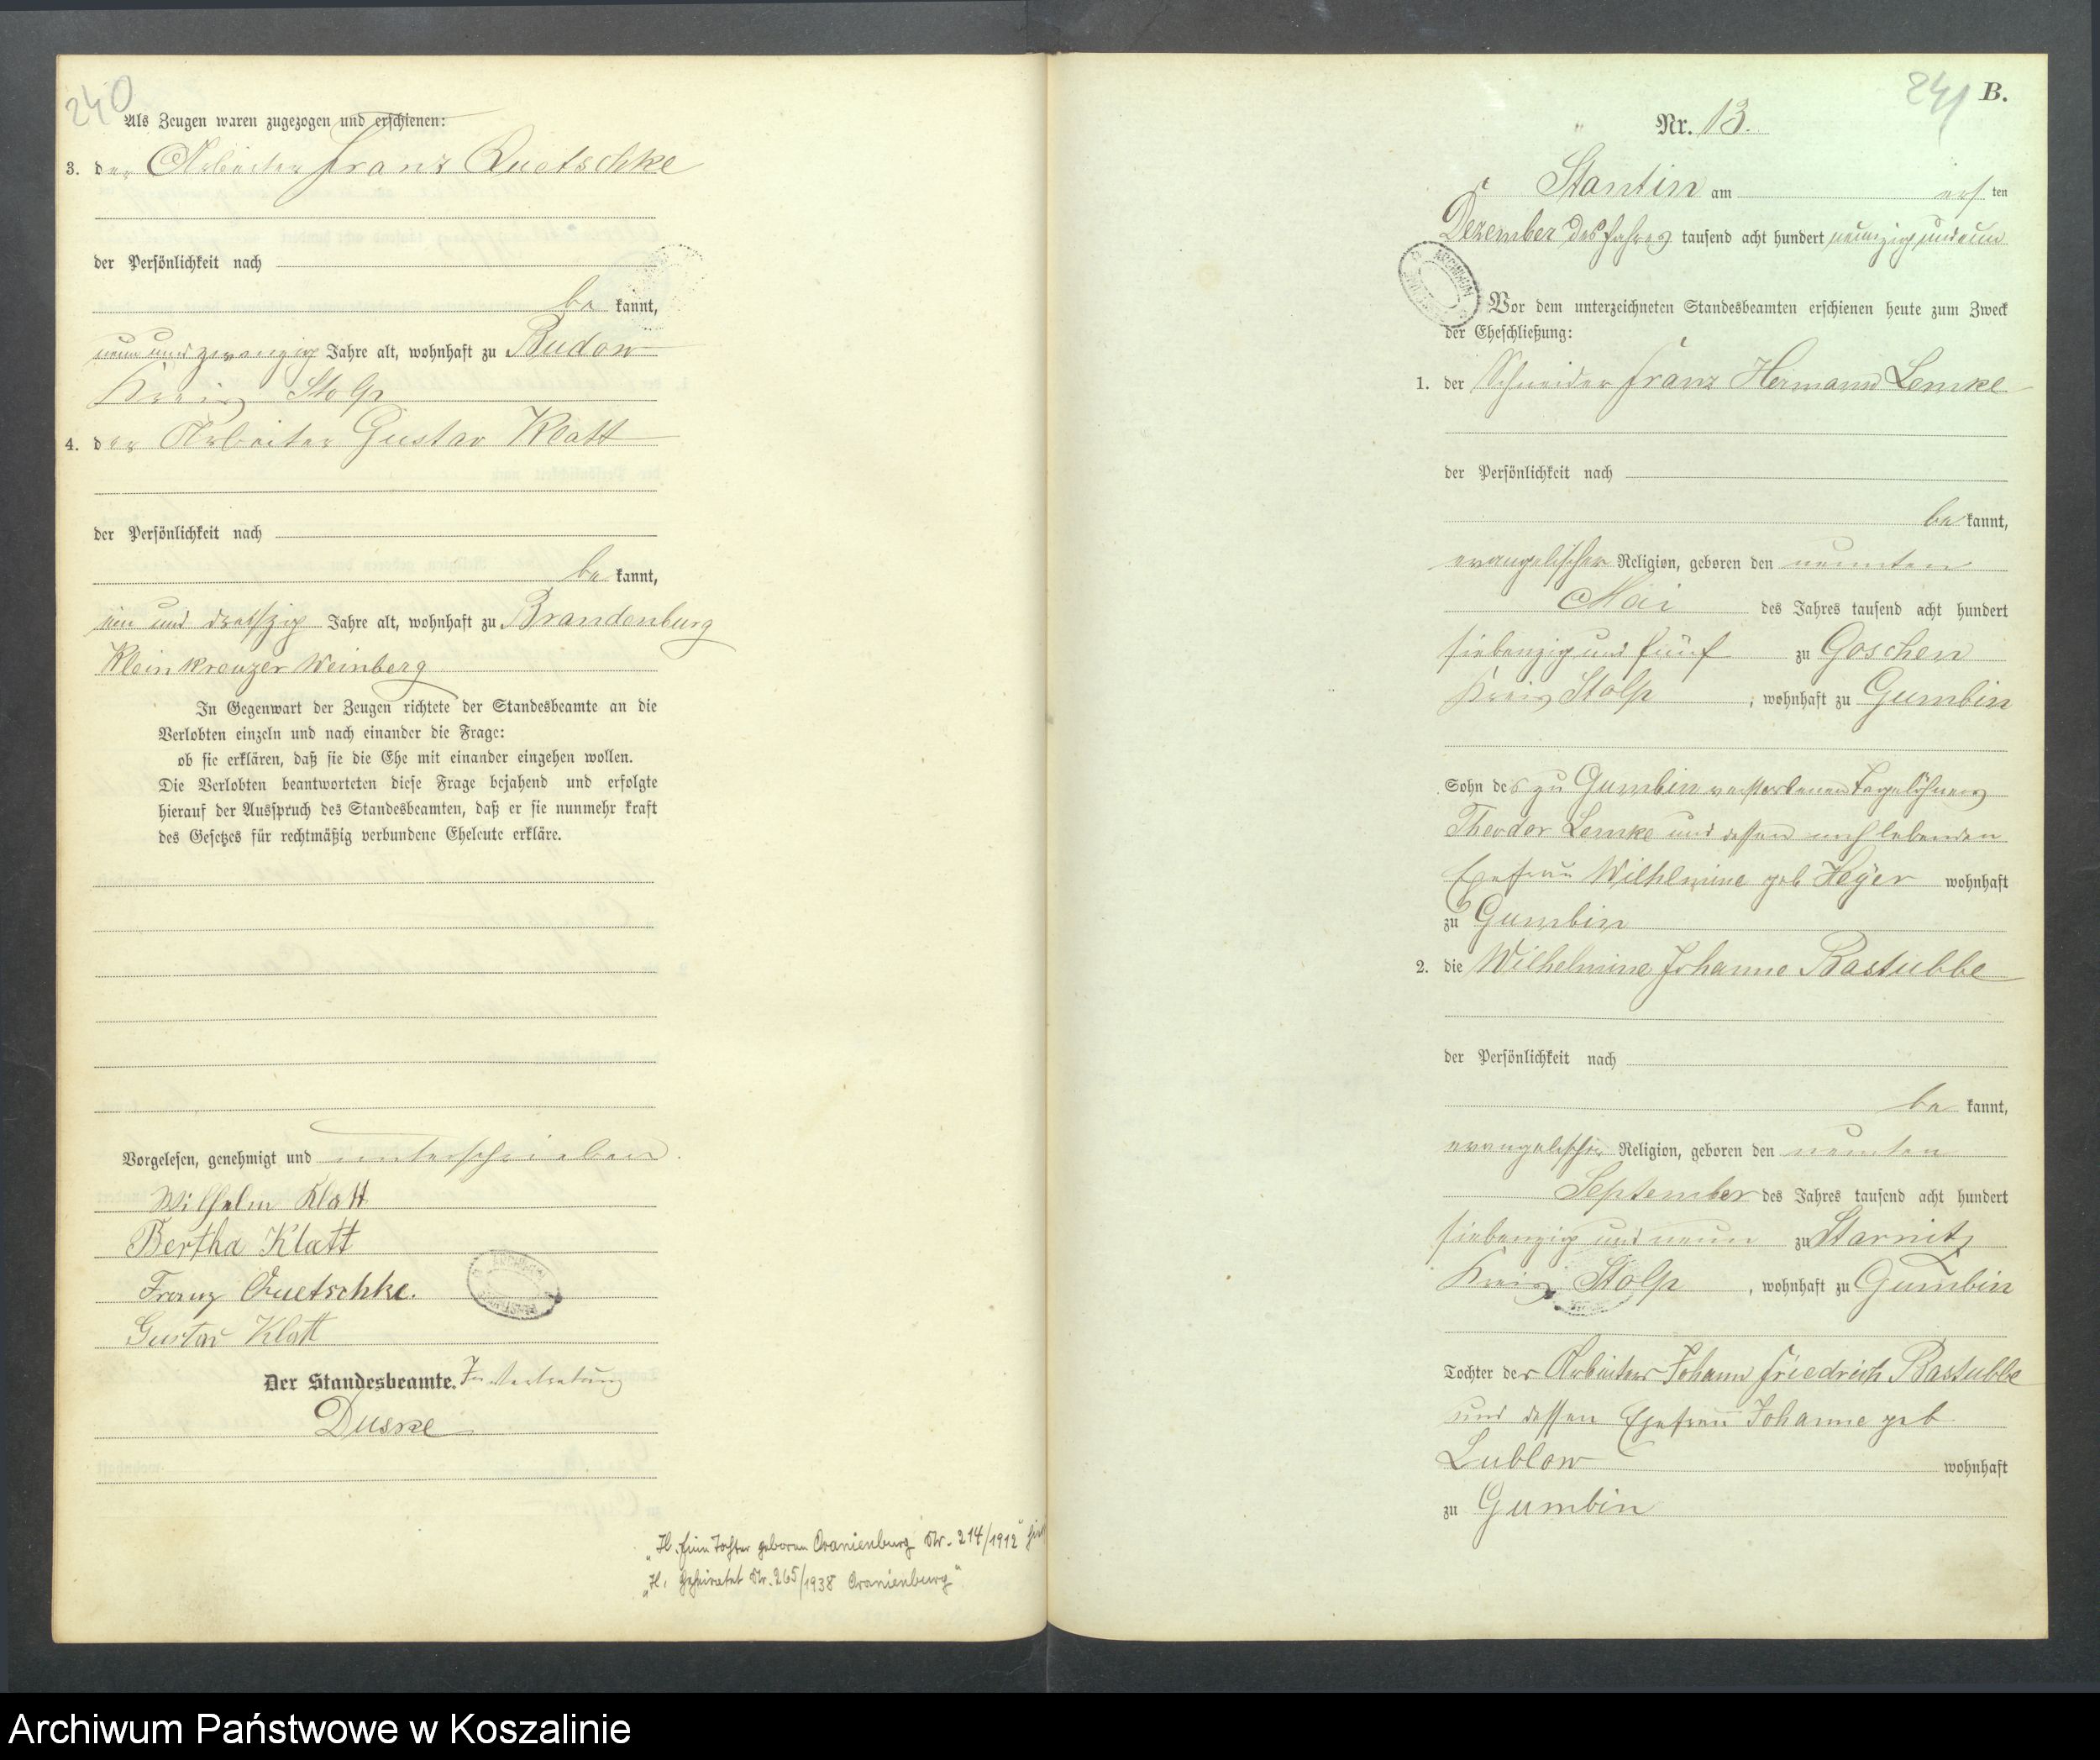 240
Als Zeugen waren zugezogen und erschienen:
3. der Arbeiter Franz Quetschke
der Persönlichkeit nach
be kannt,
neun und zwanzig Jahre alt, wohnhaft zu Budow
Kreis Stolp
4. der Arbeiter Gustav Klatt
der Persönlichkeit nach
be kannt,
ein und dreißig Jahre alt, wohnhaft zu Brandenburg
Klein Kreuzer Weinberg
In Gegenwart der Zeugen richtete der Standesbeamte an die
Verlobten einzeln und nach einander die Frage:
ob sie erklären, daß sie die Ehe mit einander eingehen wollen.
Die Verlobten beantworteten diese Frage bejahend und erfolgte
hierauf der Ausspruch des Standesbeamten, daß er sie nunmehr kraft
des Gesetzes für rechtmäßig verbundene Eheleute erkläre.
Vorgelesen, genehmigt und unterschrieben
Wilhelm Klatt
Bertha Klatt
Franz Quetschke.
Gustav Klatt
Der Standesbeamte. In Vertretung
Duske
„Hl. Eine Tochter geboren Oranienburg Nr. 214/1912“
„Hl. Geheiratet Nr. 265/1938 Oranienburg“
241
B.
Nr. 13.
Stantin am ersten
Dezember des Jahres tausend acht hundert neunzig und neun
Vor dem unterzeichneten Standesbeamten erschienen heute zum Zweck
der Eheschließung:
1. der Schneider Franz Hermann Lemke
der Persönlichkeit nach
be kannt,
evangelischer Religion, geboren den neunten
Mai des Jahres tausend acht hundert
siebenzig und fünf zu Goschen
Kreis Stolp, wohnhaft zu Gumbin
Sohn des zu Gumbin verstorbenen Tagelöhners
Theodor Lemke und dessen noch lebenden
Ehefrau Wilhelmine geb Heyer wohnhaft
zu Gumbin
2. die Wilhelmine Johanne Bastubbe
der Persönlichkeit nach
be kannt,
evangelischer Religion, geboren den neunten
September des Jahres tausend acht hundert
siebenzig und neun zu Starnitz
Kreis Stolp, wohnhaft zu Gumbin
Tochter des Arbeiters Johann Friedrich Bastubbe
und dessen Ehefrau Johanne geb
Lublow wohnhaft
zu Gumbin
Archiwum Państwowe w Koszalinie